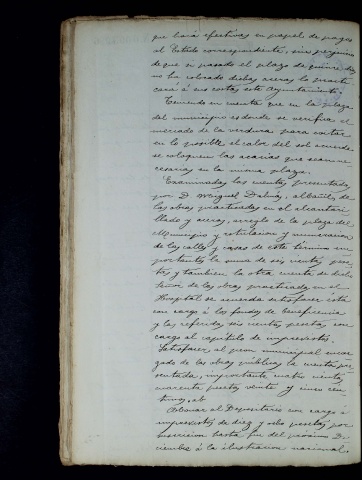 que hará efectivas en papel de pagos
al Estado correspondiente, sin perjuicio
de que si pasado el plazo de quince dias
no ha cobrado dichas aceras lo practi
cará á sus costas este Ayuntamiento.
Teniendo en cuenta que en la plaza
del municipio es donde se verifica el
mercado de la verdura para evitar
en lo posible el calor del sol acuerda
se coloquen las acacias que sean ne
cesarias en la misma plaza.
Examinadas las cuentas presentadas
por D. Miguel Dalmau, albañil, de
las obras practicadas en el alcantari
llado y aceras, arreglo de la plaza del
Municipio y rotulacion y numeracion
de las calles y casas de este término im
portantes la suma de seis cientas pese
tas y tambien la otra cuenta de dicho
Señor de las obras practicadas en el
Hospital se acuerda satisfacer esta
con cargo á los fondos de beneficencia
y las referidas seis cientas pesetas con
cargo al capítulo de imprevistos.
Satisfacer al peon municipal encar
gado de las obras públicas la cuenta pre
sentada, importante cuatro cientas
cuarenta pesetas veinte y cinco cén
timos.
Abonar al Depositario con cargo á
imprevistos de diez y ocho pesetas por
suscricion hasta fin del próximo Di
ciembre á la ilustracion nacional.